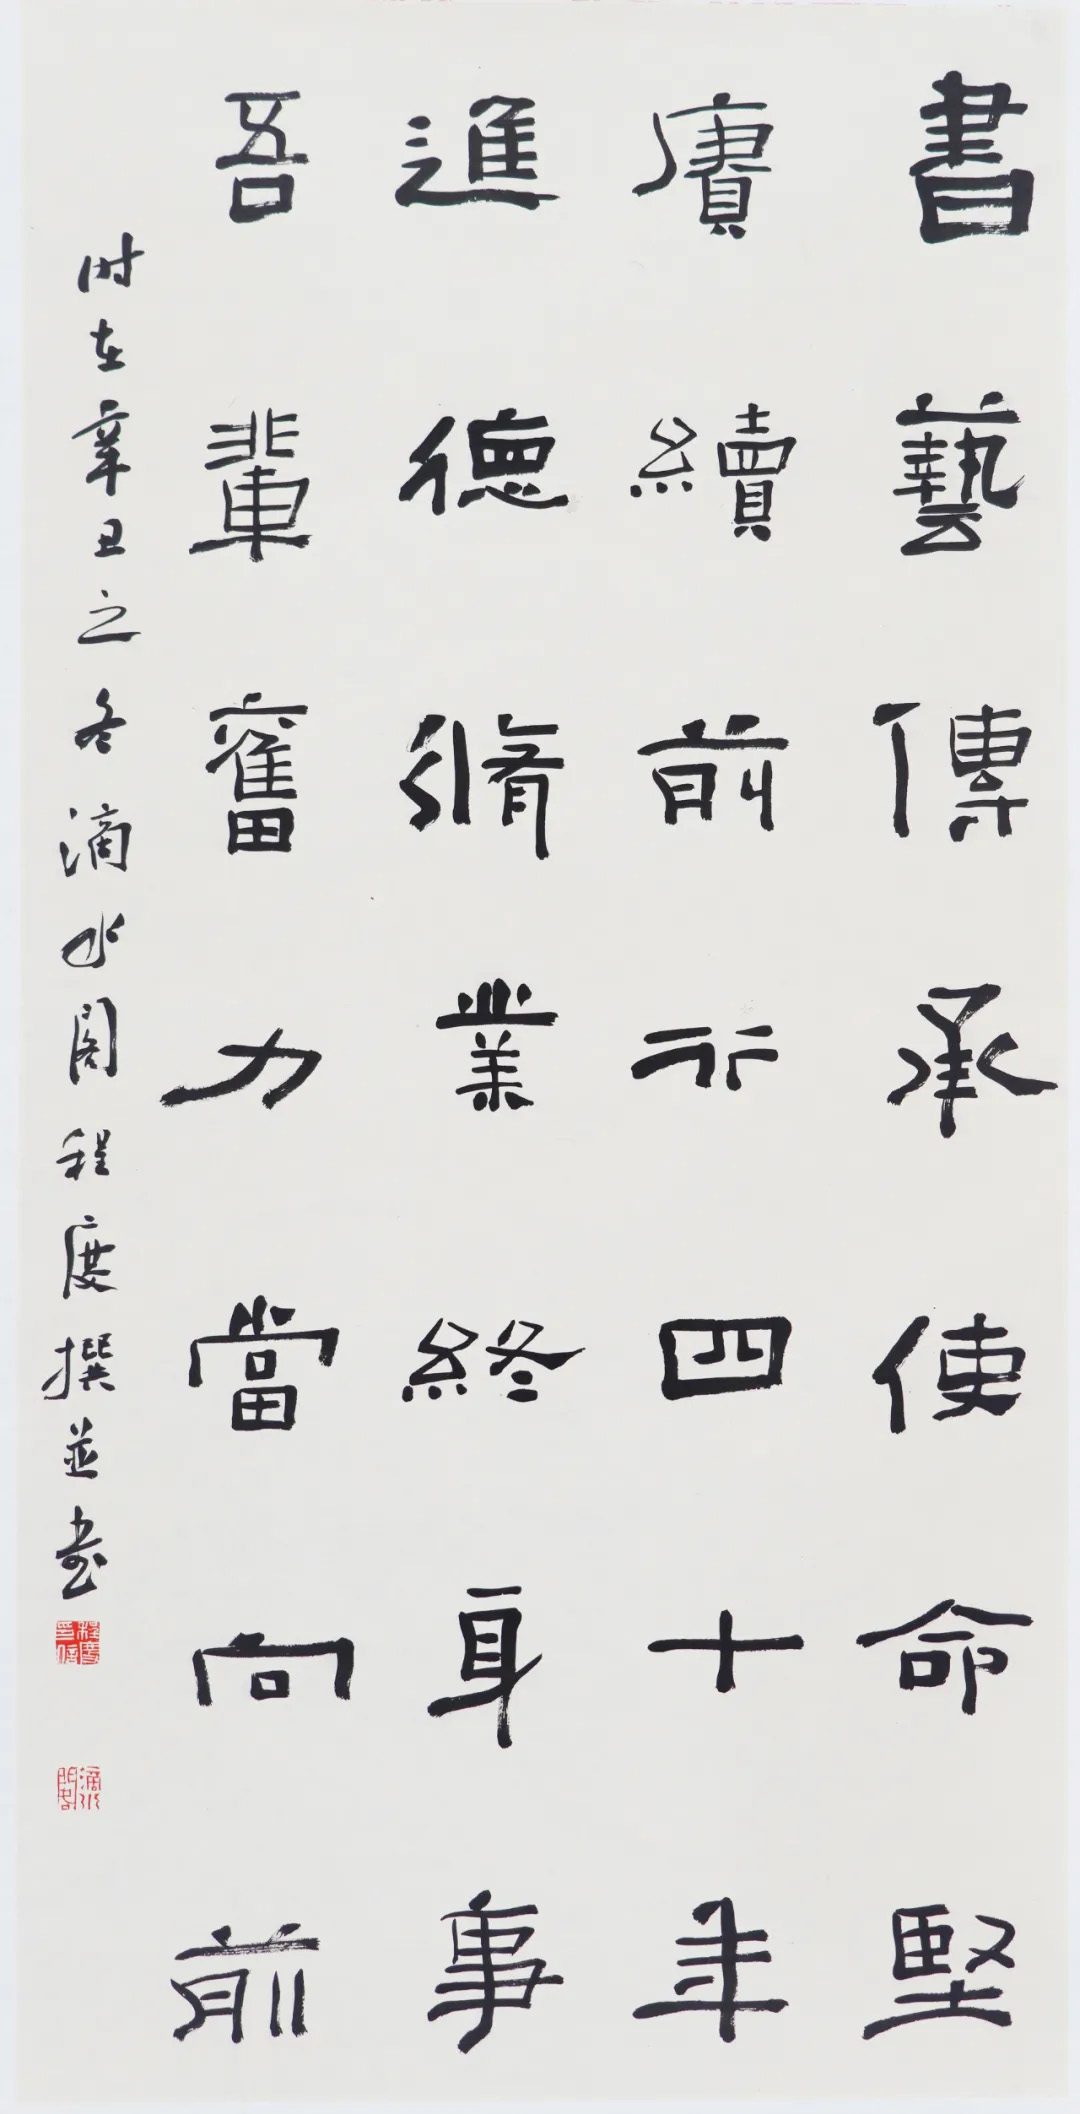 書藝傳承使命堅
賡續前行四十年
進德脩業終身事
吾輩奮力當向前
时在辛丑之冬滴水阁程度撰並书
程度印信
滴水閣